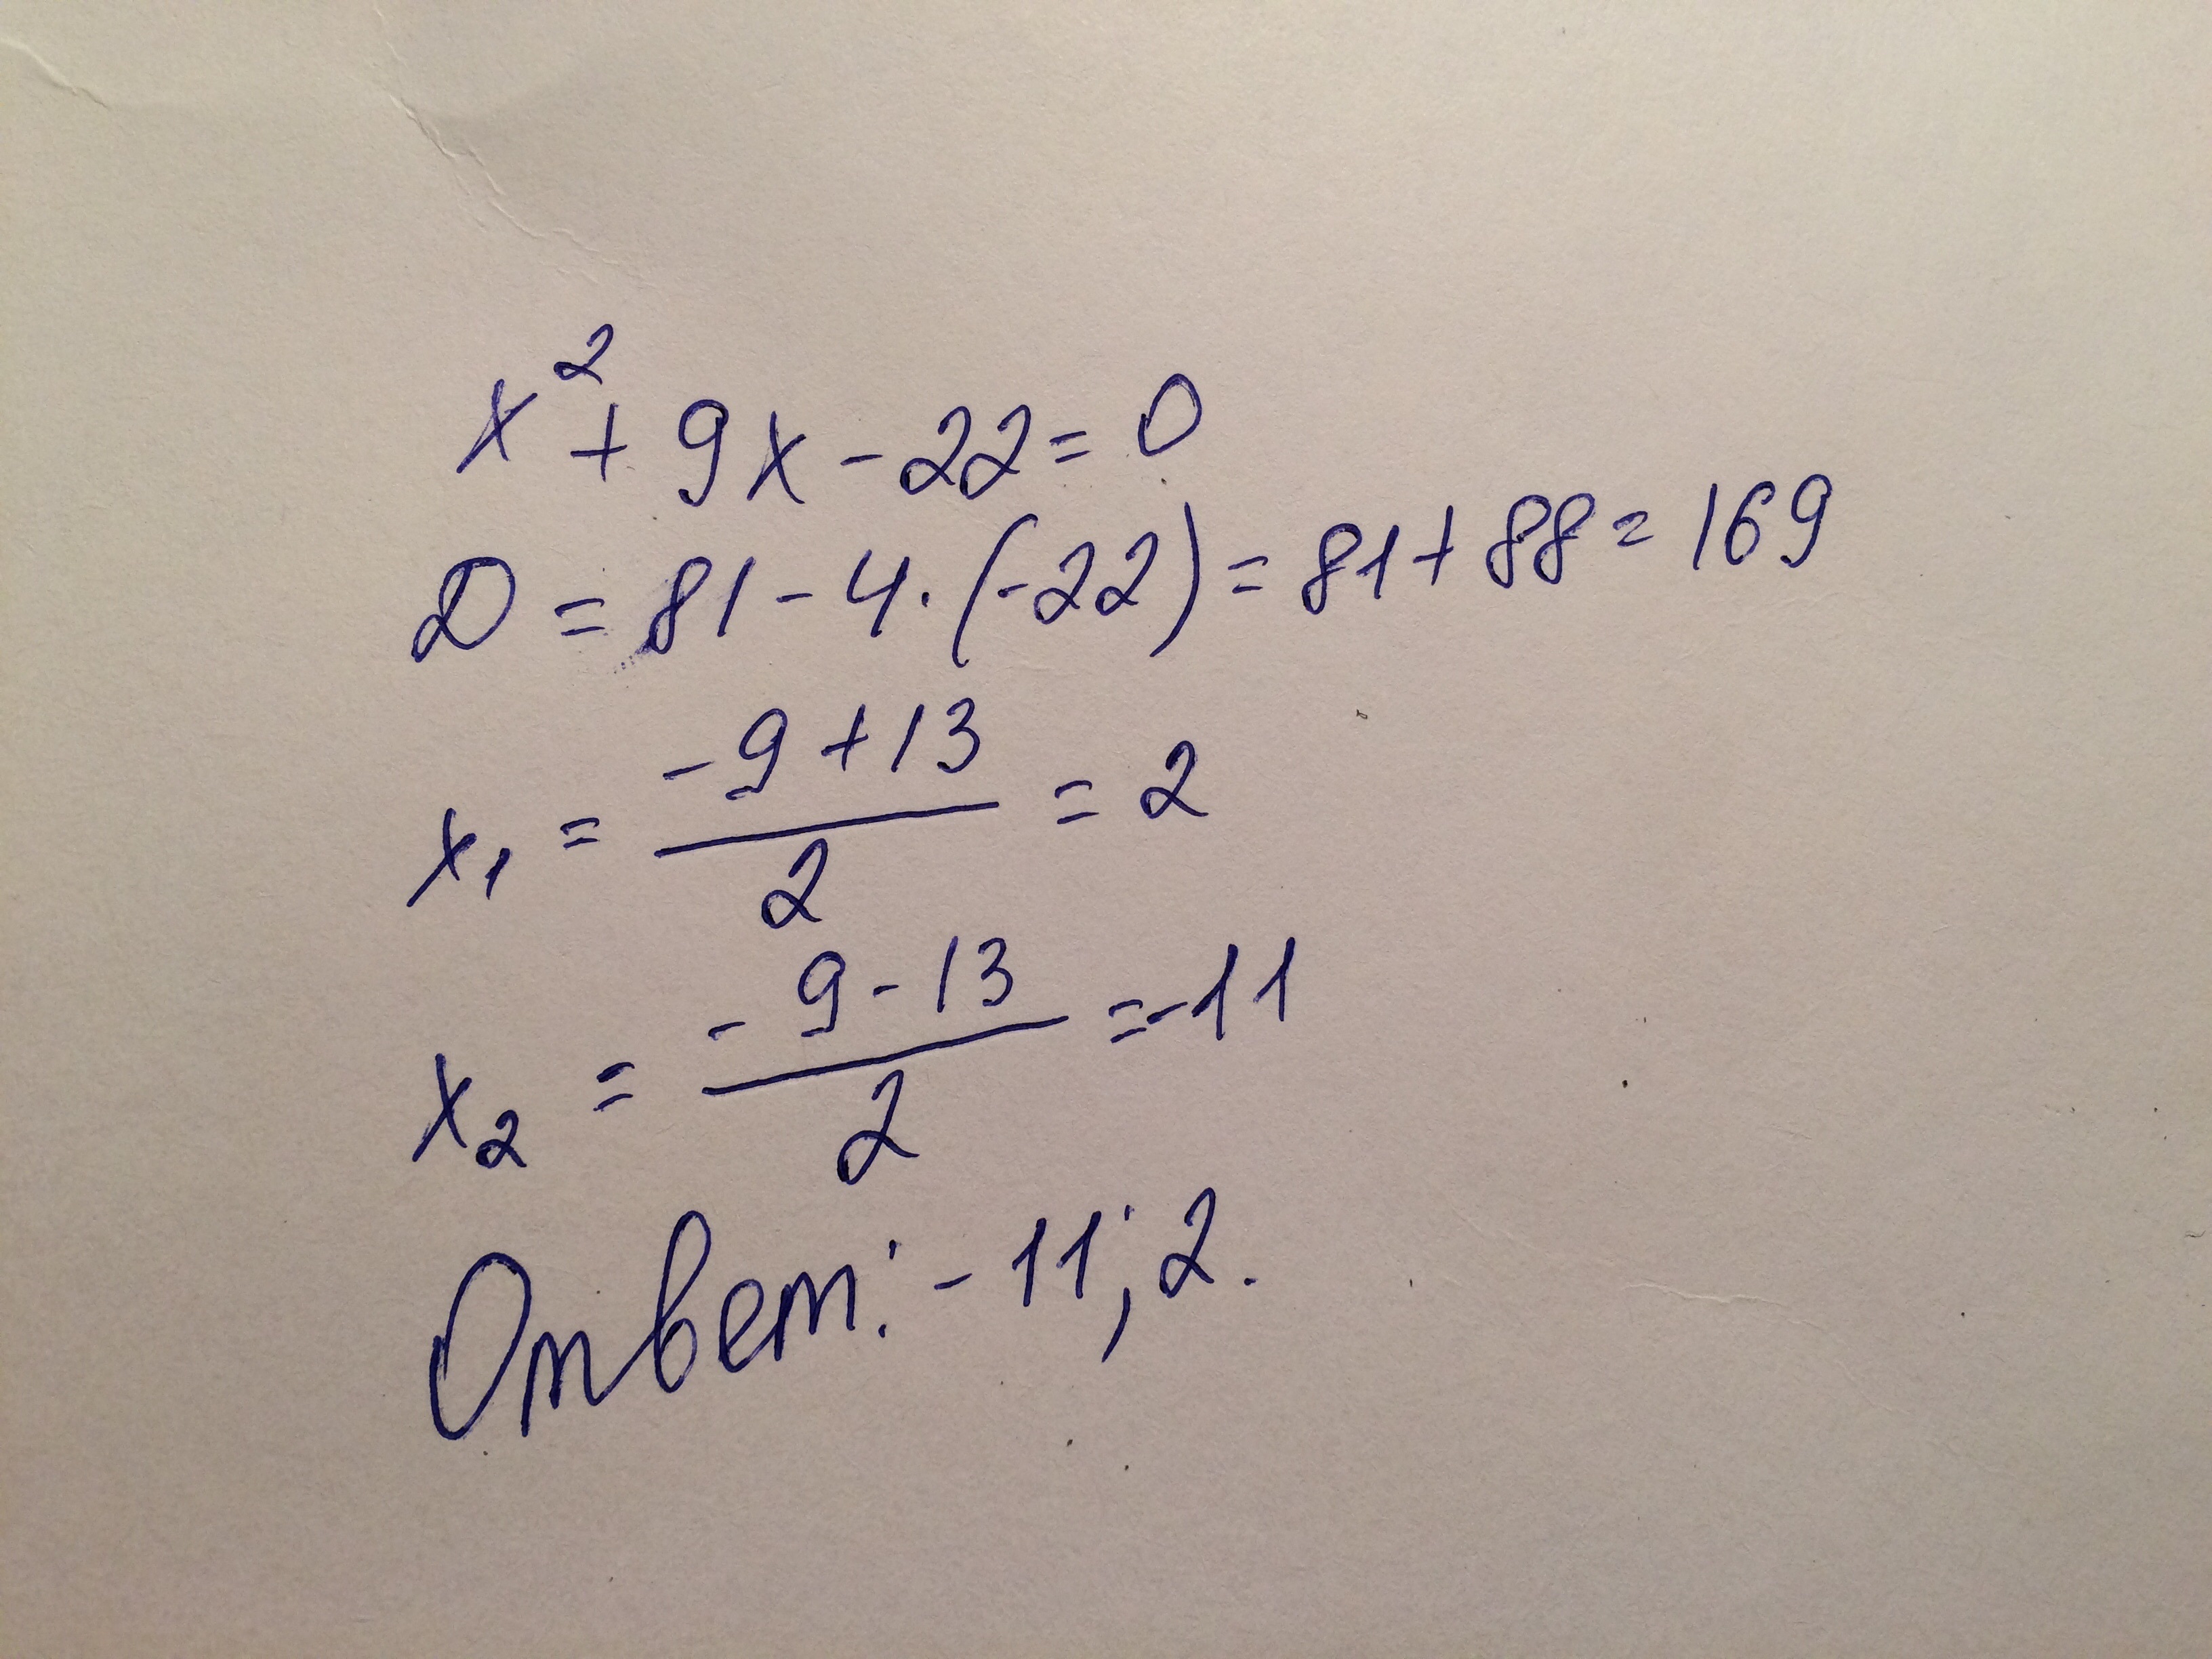 x² + 9x - 22 = 0
D = 81 - 4 · (-22) = 81 + 88 = 169
x₁ = (-9 + 13)/2 = 2
x₂ = (-9 - 13)/2 = -11
Ответ: -11; 2.